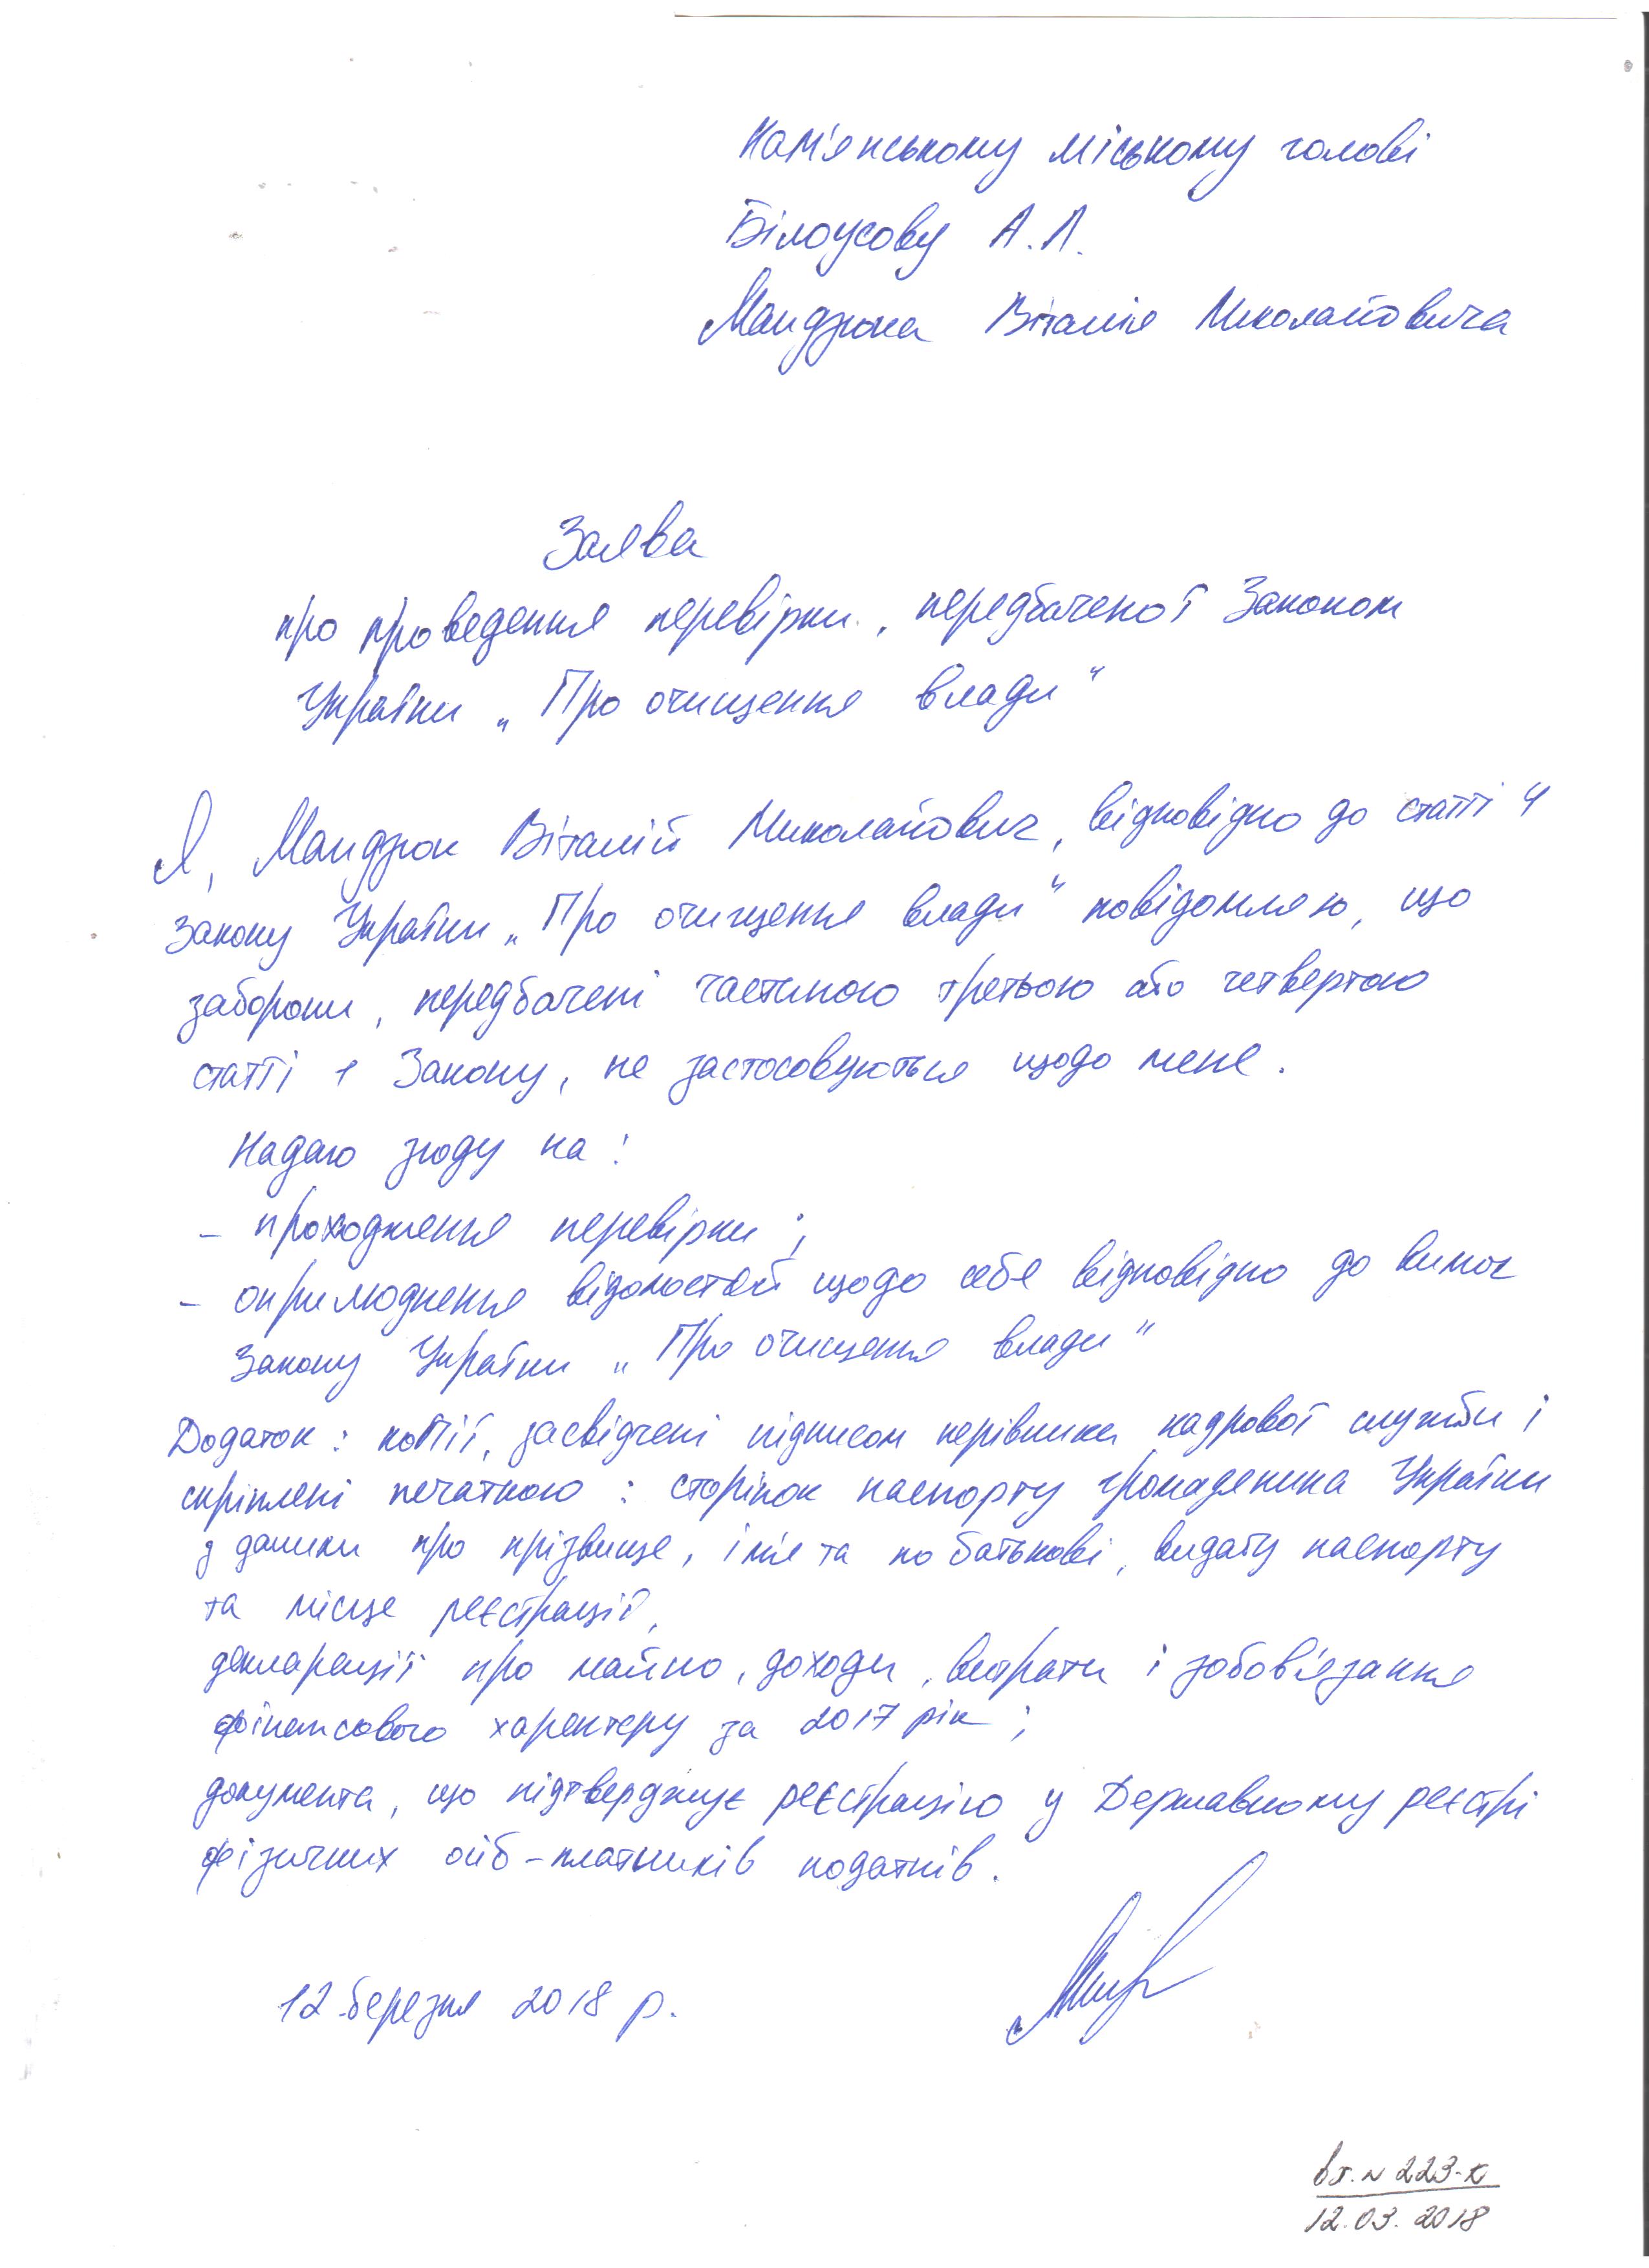 Кам'янському міському голові
Білоусову А.Л.
Мандзюка Віталія Миколайовича
Заява
про проведення перевірки, передбаченої Законом
України „Про очищення влади"
Я, Мандзюк Віталій Миколайович, відповідно до статті 4
Закону України „Про очищення влади" повідомляю, що
заборони, передбачені частиною третьою або четвертою
статті 1 Закону, не застосовуються щодо мене.
Надаю згоду на:
- проходження перевірки;
- оприлюднення відомостей щодо себе відповідно до вимог
Закону України „Про очищення влади"
Додаток: копії, засвідчені підписом керівника кадрової служби і
скріплені печаткою: сторінок паспорту громадянина України
з даними про прізвище, ім'я та по батькові, видачу паспорту
та місце реєстрації,
декларації про майно, доходи, витрати і зобов'язання
фінансового характеру за 2017 рік;
документа, що підтверджує реєстрацію у Державному реєстрі
фізичних осіб-платників податків.
12 березня 2018 р.
вх. № 223-к
12.03.2018